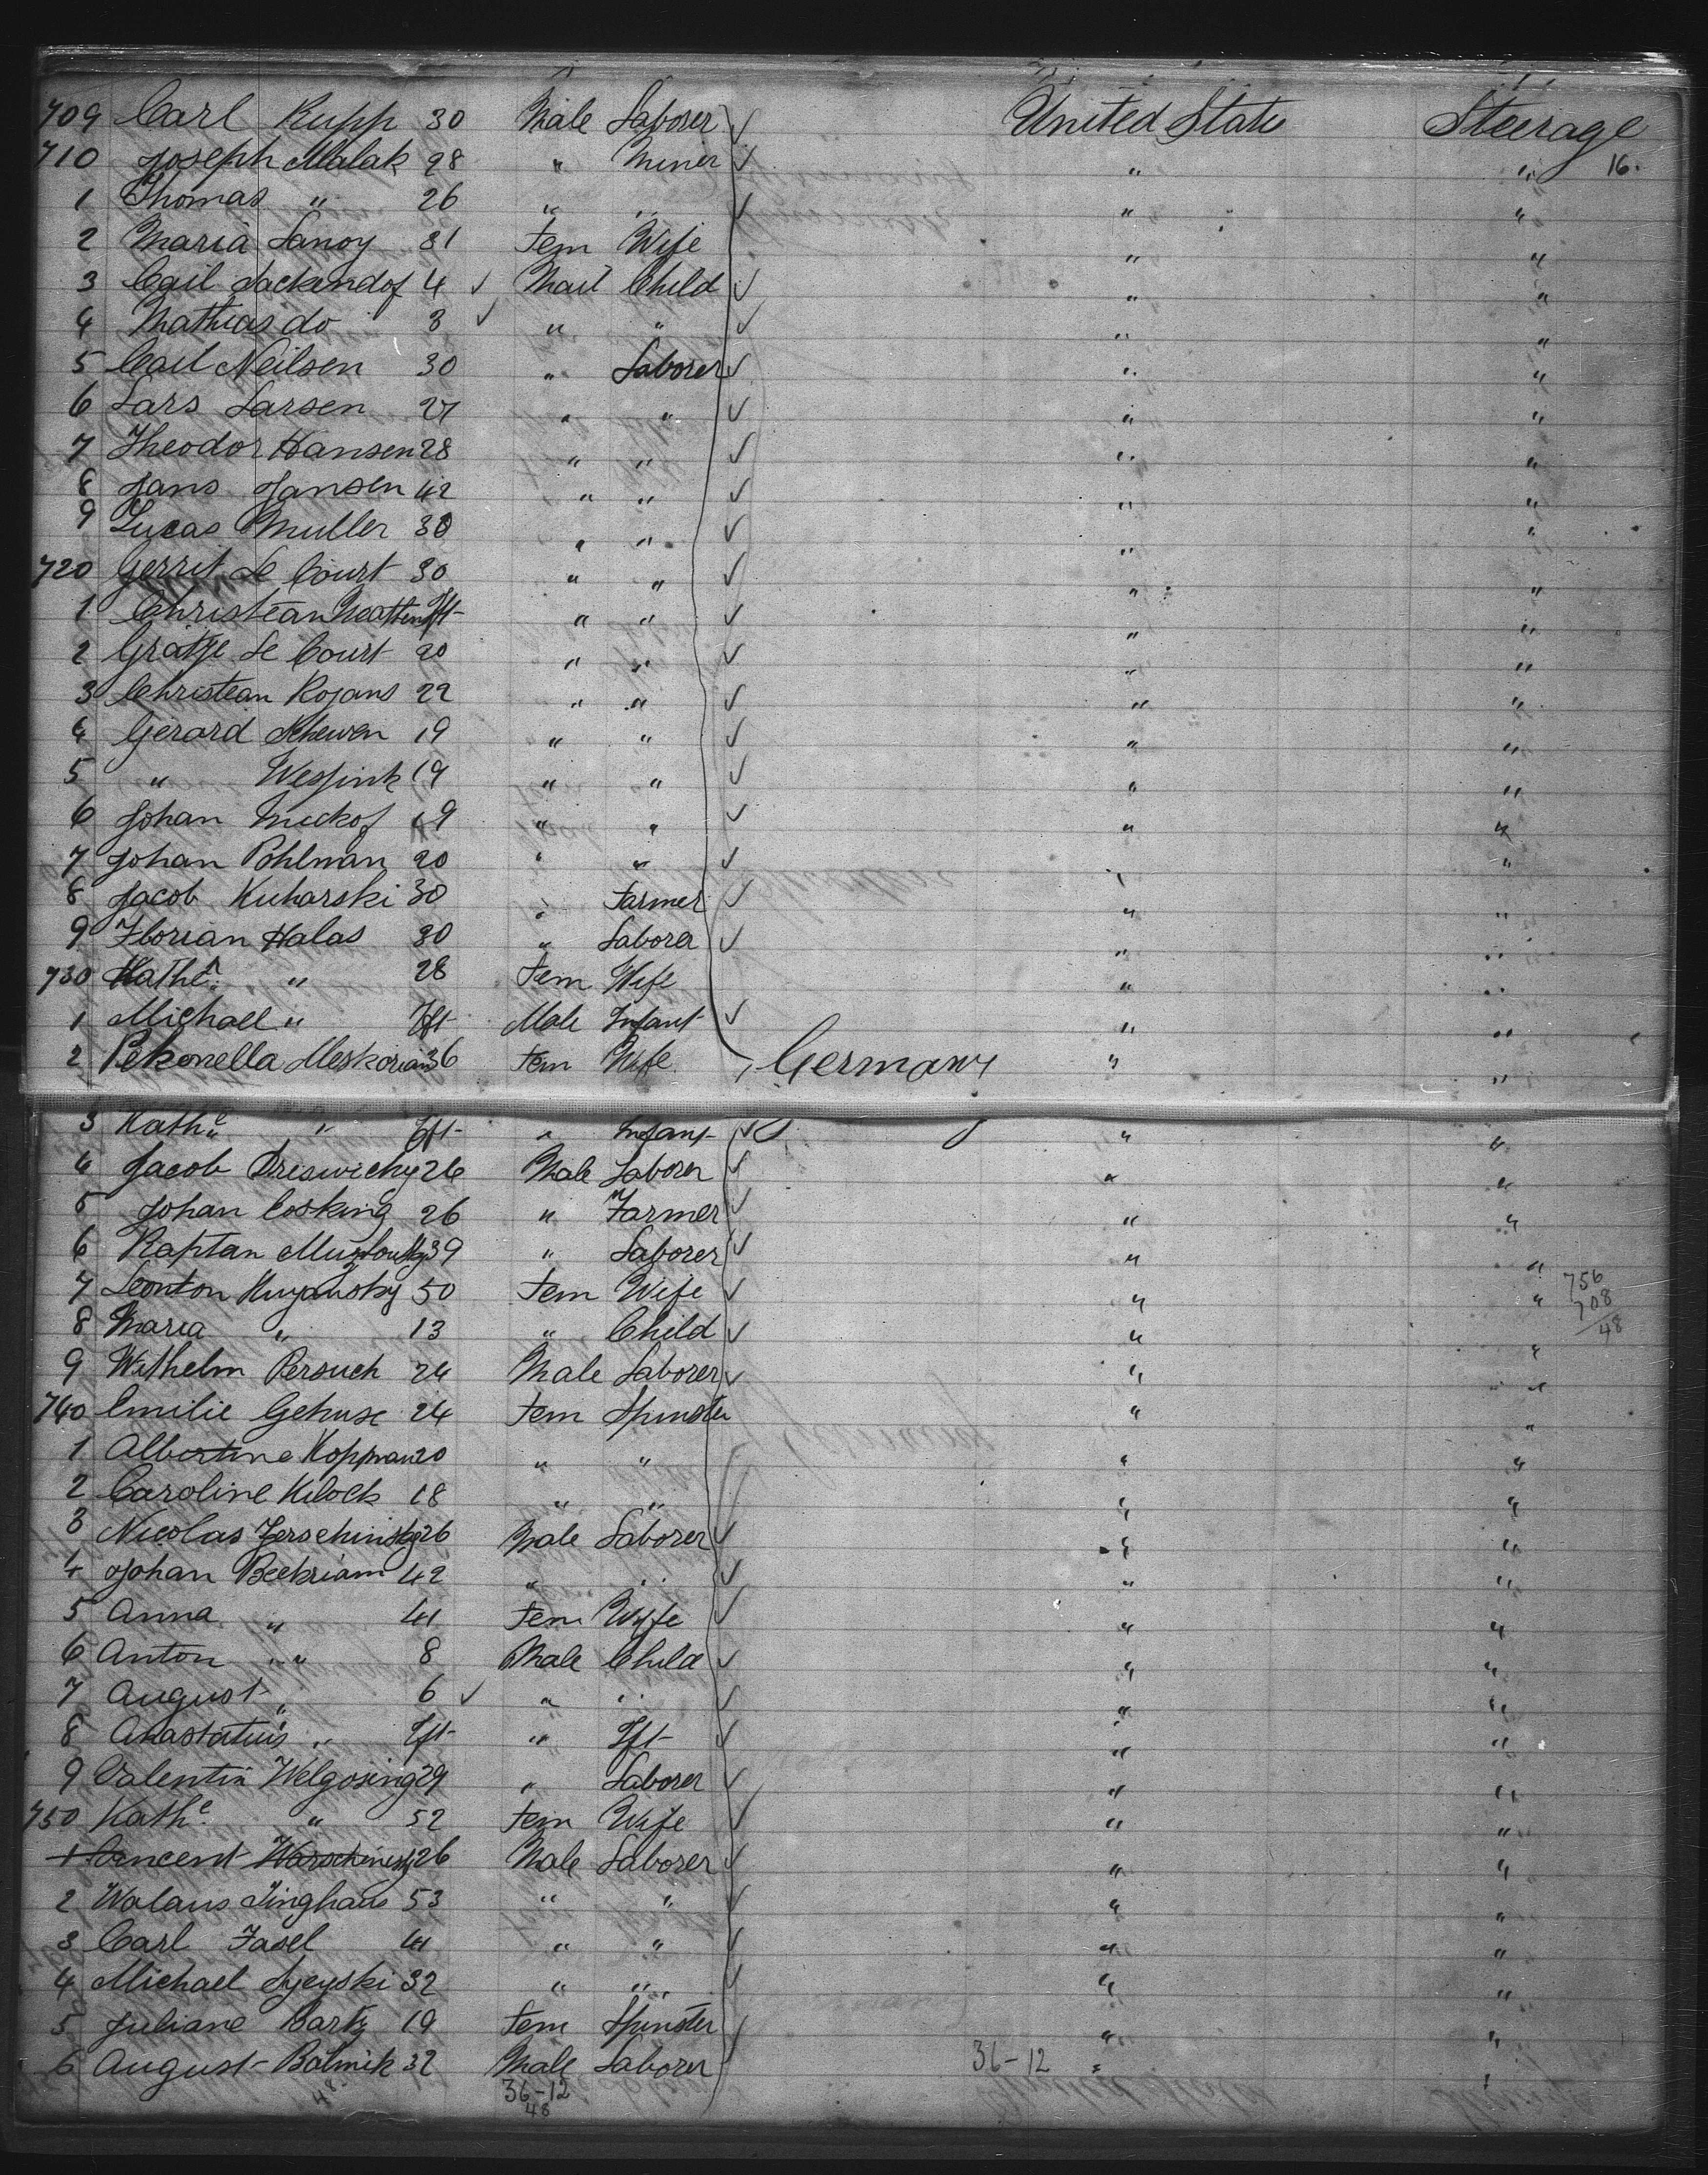 709 Carl Rupp 30 Male Laborer United State Steerage
710 Joseph Malak 28 " Miner " " 16.
1 Thomas " 26 " " " "
2 Maria Lanoy 31 Fem Wife " "
3 Carl Sackendof 4 Male Child " "
4 Mathias do 3 " " " "
5 Carl Neilsen 30 " Laborer " "
6 Lars Larsen 27 " " " "
7 Theodor Hansen 28 " " " "
8 Jans Jansen 42 " " " "
9 Lucas Muller 30 " " " "
720 Gerrit Le Court 30 " " " "
1 Christean Ift " " " "
2 Gratje Le Court 20 " " " "
3 Christean Rojans 22 " " " "
4 Gerard 19 " " " "
5 " Wessink 19 " " " "
6 Johan 19 " " " "
7 Johan Pohlman 20 " " " "
8 Jacob Kuharski 30 " Farmer " "
9 Florian Halas 30 " Laborer " "
730 Kathe " 28 Fem Wife " "
1 Michael " Ift Male Infant " "
2 Petronella 36 Fem Wife Germany " "
3 Kathe " Ift " Infant " "
4 Jacob 26 Male Laborer " "
5 Johan Cosking 26 " Farmer " "
6 Kaptan 39 " Laborer " "
7 50 Fem Wife " " 756
708
48
8 Maria " 13 " Child " "
9 Wilhelm Persuch 24 Male Laborer " "
740 Emilie Gehuse 24 Fem Spinster " "
1 Albertine Kopman 20 " " " "
2 Caroline Kilock 18 " " " "
3 Nicolas 26 Male Laborer " "
4 Johan Beckriam 42 " " " "
5 Anna " 41 Fem Wife " "
6 Anton " 8 Male Child " "
7 August " 6 " " " "
8 Anastatius " Ift " Ift " "
9 Valentin Welgosing 29 " Laborer " "
750 Kathe " 52 Fem Wife " "
1 Vincent 26 Male Laborer " "
2 Walans 53 " " " "
3 Carl Fasel 41 " " " "
4 Michael 32 " " " "
5 Juliane Bartz 19 Fem Spinster " "
6 August Balmik 32 Male Laborer " "
48 36-12 36-12
48